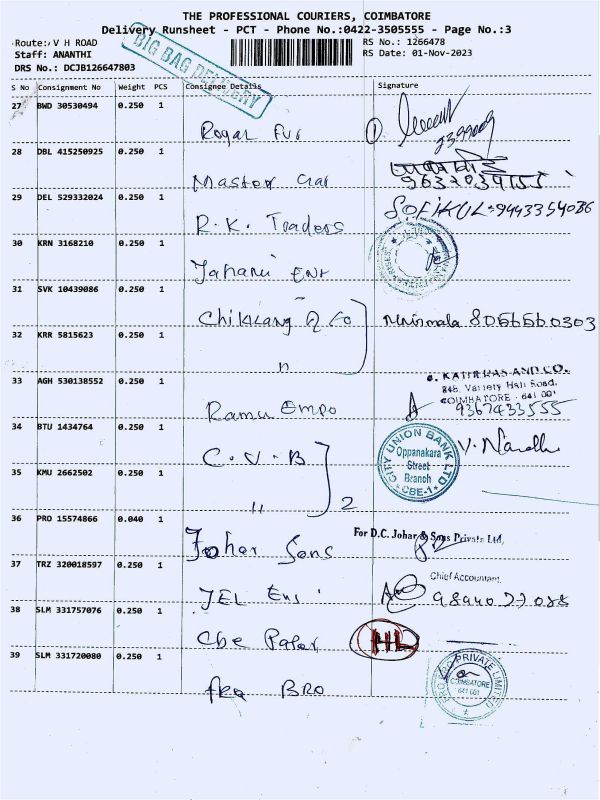 THE PROFESSIONAL COURIERS, COIMBATORE
Delivery Runsheet - PCT - Phone No.:0422-3505555 - Page No.:3
Route: V H ROAD RS No.: 1266478
Staff: ANANTHI RS Date: 01-Nov-2023
DRS No.: DCJB126647803
BIG BAG DELIVERY
S No Consignment No Weight PCS Consignee Details Signature
27 BWD 30530494 0.250 1
Rogar Fur 1
28 DBL 415250925 0.250 1
Master
29 DEL 529332024 0.250 1
R.K. Traders SOFIKUL 9443354086
30 KRN 3168210 0.250 1
Ent
31 SVK 10439086 0.250 1
Nirmala 8056560303
32 KRR 5815623 0.250 1
"
33 AGH 530138552 0.250 1
848, Variety Hall Road,
COIMBATORE - 641 001
Ramu Empo 9367433555
34 BTU 1434764 0.250 1
C.U.B V. Nandhi
CITY UNION BANK LTD
Oppanakara
Street
Branch
CBE-1
35 KMU 2662502 0.250 1
" 2
36 PRO 15574866 0.040 1
For D.C. Johar & Sons Private Ltd,
Johar Sons
37 TRZ 320018597 0.250 1
Chief Accountant
JEL Ent
38 SLM 331757076 0.250 1
Cbe Paper HL
39 SLM 331720080 0.250 1
PRO PRIVATE LIMITED
COIMBATORE
641 001
BRO